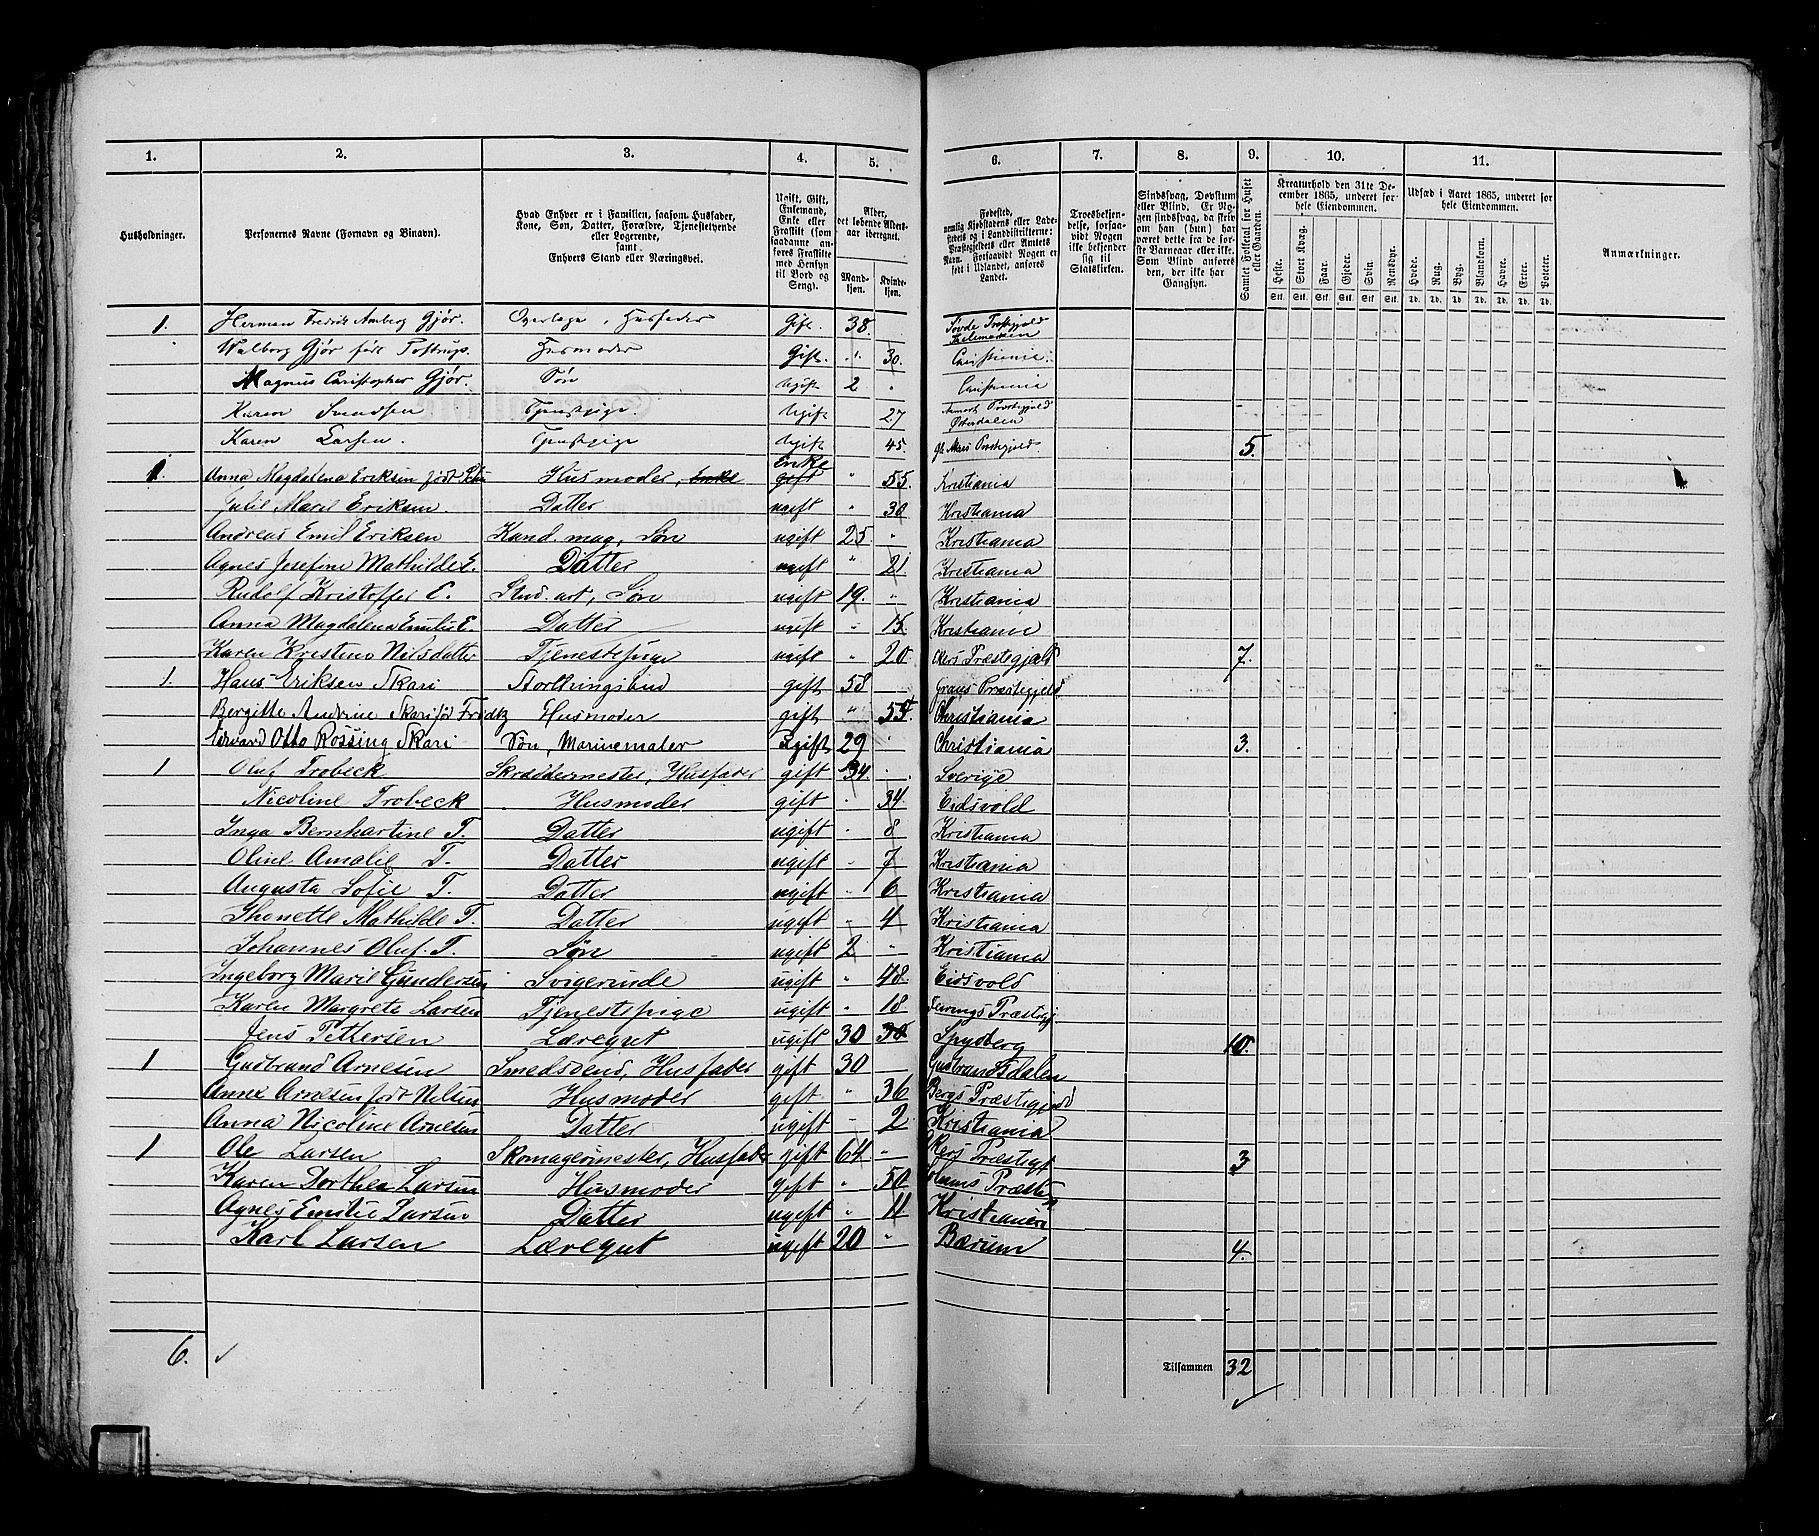 1. 2. 3. 4. 5. 6. 7. 8. 9. 10. 11.
Husholdninger.
Personernes Navne (Fornavn og Binavn).
Hvad Enhver er i Familien, saasom Husfader, Kone, Søn, Datter, Forældre, Tjenestetyende eller Logerende, samt Enhvers Stand eller Næringsvei.
Ugift, Gift, Enkemand, Enke eller Fraskilt (som saadanne anføres Fraskilte med Hensyn til Bord og Seng).
Alder, det løbende Aldersaar iberegnet.
Mandkjøn. Kvindekjøn.
Fødested, nemlig Kjøbstadens eller Ladestedets og i Landdistrikterne: Præstegjeldets eller Amtets Navn. Forsaavidt Nogen er født i Udlandet, anføres Landet.
Troesbekjendelse, forsaavidt Nogen ikke bekjender sig til Statskirken.
Sindssvag, Døvstum eller Blind. Er Nogen sindssvag, da skriv om han (hun) har været dette fra de første Barneaar eller ikke. Som Blind anføres den, der ikke har Gangsyn.
Samlet Folketal for Huset eller Gaarden.
Kreaturhold den 31te December 1865, underet forhele Eiendommen.
Heste. Stort Kvæg. Faar. Gjeder. Svin. Rensdyr.
Stk. Stk. Stk. Stk. Stk. Stk.
Udsæd i Aaret 1865, underet for hele Eiendommen.
Hvede. Rug. Byg. Blandkorn. Havre. Erter. Poteter.
Td. Td. Td. Td. Td. Td. Td.
Anmærkninger.
1. Herman Fredrik Amberg Gjør. Overlæge, Husfader Gift. 38.
Walborg Gjør født Tostrup. Husmoder Gift. 30. Christiania
Magnus Christopher Gjør. Søn Ugift 2 " Christiania
Karen Svendsen Tjenstpige. Ugift 27 Præstegjeld Østerdalen
Karen Larsen. Tjenstpige Ugift 45 Præstegjeld 5.
1. Anna Magdalena Eriksen født Husmoder, Enke gift Enke " 55. Kristiania
Julie Marie Eriksen Datter ugift " 30 Kristiania
Andreas Emil Eriksen Kand. mag, Søn ugift 25. " Kristiania
Agnes Josefine Mathilde E. Datter ugift " 21. Kristiania
Rudolf Kristoffer E. Stud. art, Søn ugift 19. " Kristiania
Anna Magdalena Emilie E. Datter ugift " 15. Kristiania
Karen Kristine Nilsdatter Tjenestepige ugift " 20. Akers Præstegjæld 7.
1. Hans Eriksen Skari gift 58 Grans Præstegjeld
Bergitte Andrine Skari Husmoder gift " 54. Christiania
Edvard Otto Rossing Skari Søn, Marinemaler ugift 29 Christiania 3.
1 Oluf Trobeck Skræddermester, Husfader gift 34 Sverige
Nicoline Trobeck Husmoder gift 34 Eidsvold
Inga Bernhartine T. Datter ugift 8 Kristiania
Oline Amalie T. Datter ugift 7 Kristiania
Augusta Sofie T. Datter ugift 6 Kristiania
Thonette Mathilde T. Datter ugift 4 Kristiania
Johannes Oluf T. Søn ugift 2 Kristiania
Ingeborg Marie Gundersen Svigerinde ugift " 48. Eidsvold
Karen Margrete Larsen Tjenestepige ugift " 18 Præstegj
Jens Pettersen Læregut ugift 30 30 Spydberg 10.
1 Gudbrand Arnesen Smedsvend, Husfader gift 30 Gudbrandsdalen
Anne Arnesen født Nelsen Husmoder gift " 36 Bergs Præstegjeld
Anna Nicoline Arnesen Datter ugift 2 Kristiania
1 Ole Larsen Skomagermester, Husfader gift 64 " Akers Præstegj 3
Karen Dorthea Larsen Husmoder gift " 50
Agnes Emilie Larsen Datter ugift " 11 Kristiania
Karl Larsen Læregut ugift 20 " Bærum 4.
6. Tilsammen 32